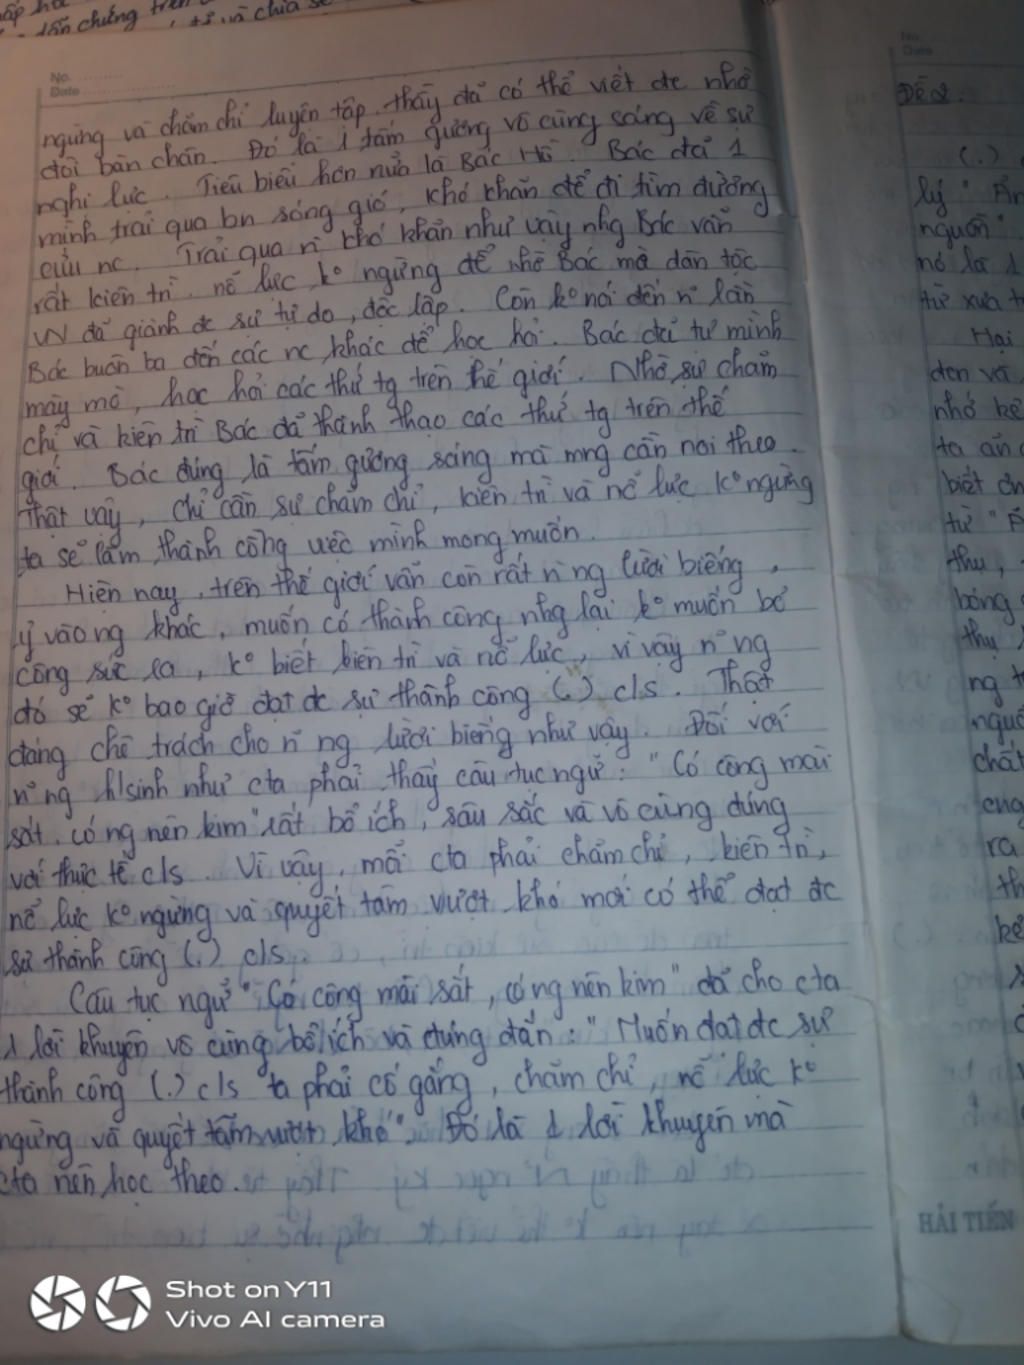 dẫn chứng trên
No.
Date
ngừng và chăm chỉ luyện tập. thầy đã có thể viết đc nhờ
đôi bàn chân. Đó là 1 tấm gương vô cùng sáng về sự
nghị lực. Tiêu biểu hơn nữa là Bác Hồ. Bác đã 1
mình trải qua bn sóng gió, khó khăn để đi tìm đường
cứu nc. Trải qua n~ khó khăn như vậy nhg Bác vẫn
rất kiên trì, nổ lực k° ngừng để nhờ Bác mà dân tộc
VN đã giành đc sự tự do, độc lập. Còn k° nói đến n~ lần
Bác buôn ba đến các nc khác để học hỏi. Bác đã tự mình
mày mò, học hỏi các thứ tg trên thế giới. Nhờ sự chăm
chỉ và kiên trì Bác đã thành thạo các thứ tg trên thế
giới. Bác đúng là tấm gương sáng mà mng cần noi theo.
Thật vậy, chỉ cần sự chăm chỉ, kiên trì và nổ lực k° ngừng
ta sẽ làm thành công việc mình mong muốn.
Hiện nay, trên thế giới vẫn còn rất n~ ng lười biếng,
ỷ vào ng khác, muốn có thành công nhg lại k° muốn bỏ
công sức ra, k° biết kiên trì và nổ lực, vì vậy n~ ng
đó sẽ k° bao giờ đạt đc sự thành công (.) c/s. Thật
đáng chê trách cho n~ ng lười biếng như vậy. Đối với
n~ ng h/sinh như cta phải thấy câu tục ngữ: "Có công mài
sắt, có ng nên kim" rất bổ ích, sâu sắc và vô cùng đúng
với thực tế c/s. Vì vậy, mỗi cta phải chăm chỉ, kiên trì,
nổ lực k° ngừng và quyết tâm vượt khó mới có thể đạt đc
sự thành công (.) c/s.
Câu tục ngữ "Có công mài sắt, có ng nên kim" đã cho cta
1 lời khuyên vô cùng bổ ích và đúng đắn: "Muốn đạt đc sự
thành công (.) c/s ta phải cố gắng, chăm chỉ, nổ lực k°
ngừng và quyết tâm vượt khó". Đó là 1 lời khuyên mà
cta nên học theo.
No.
Date
Đề 2:
(.)
lý "Ăn
nguồn".
nó là 1
từ xưa
Hai
đen và
nhớ kẻ
ta ăn
biết
từ "Ă
thụ,
bóng
thụ
ng
nguồ
chất
ra
th
kẻ
HẢI TIẾN
Shot on Y11
Vivo AI camera